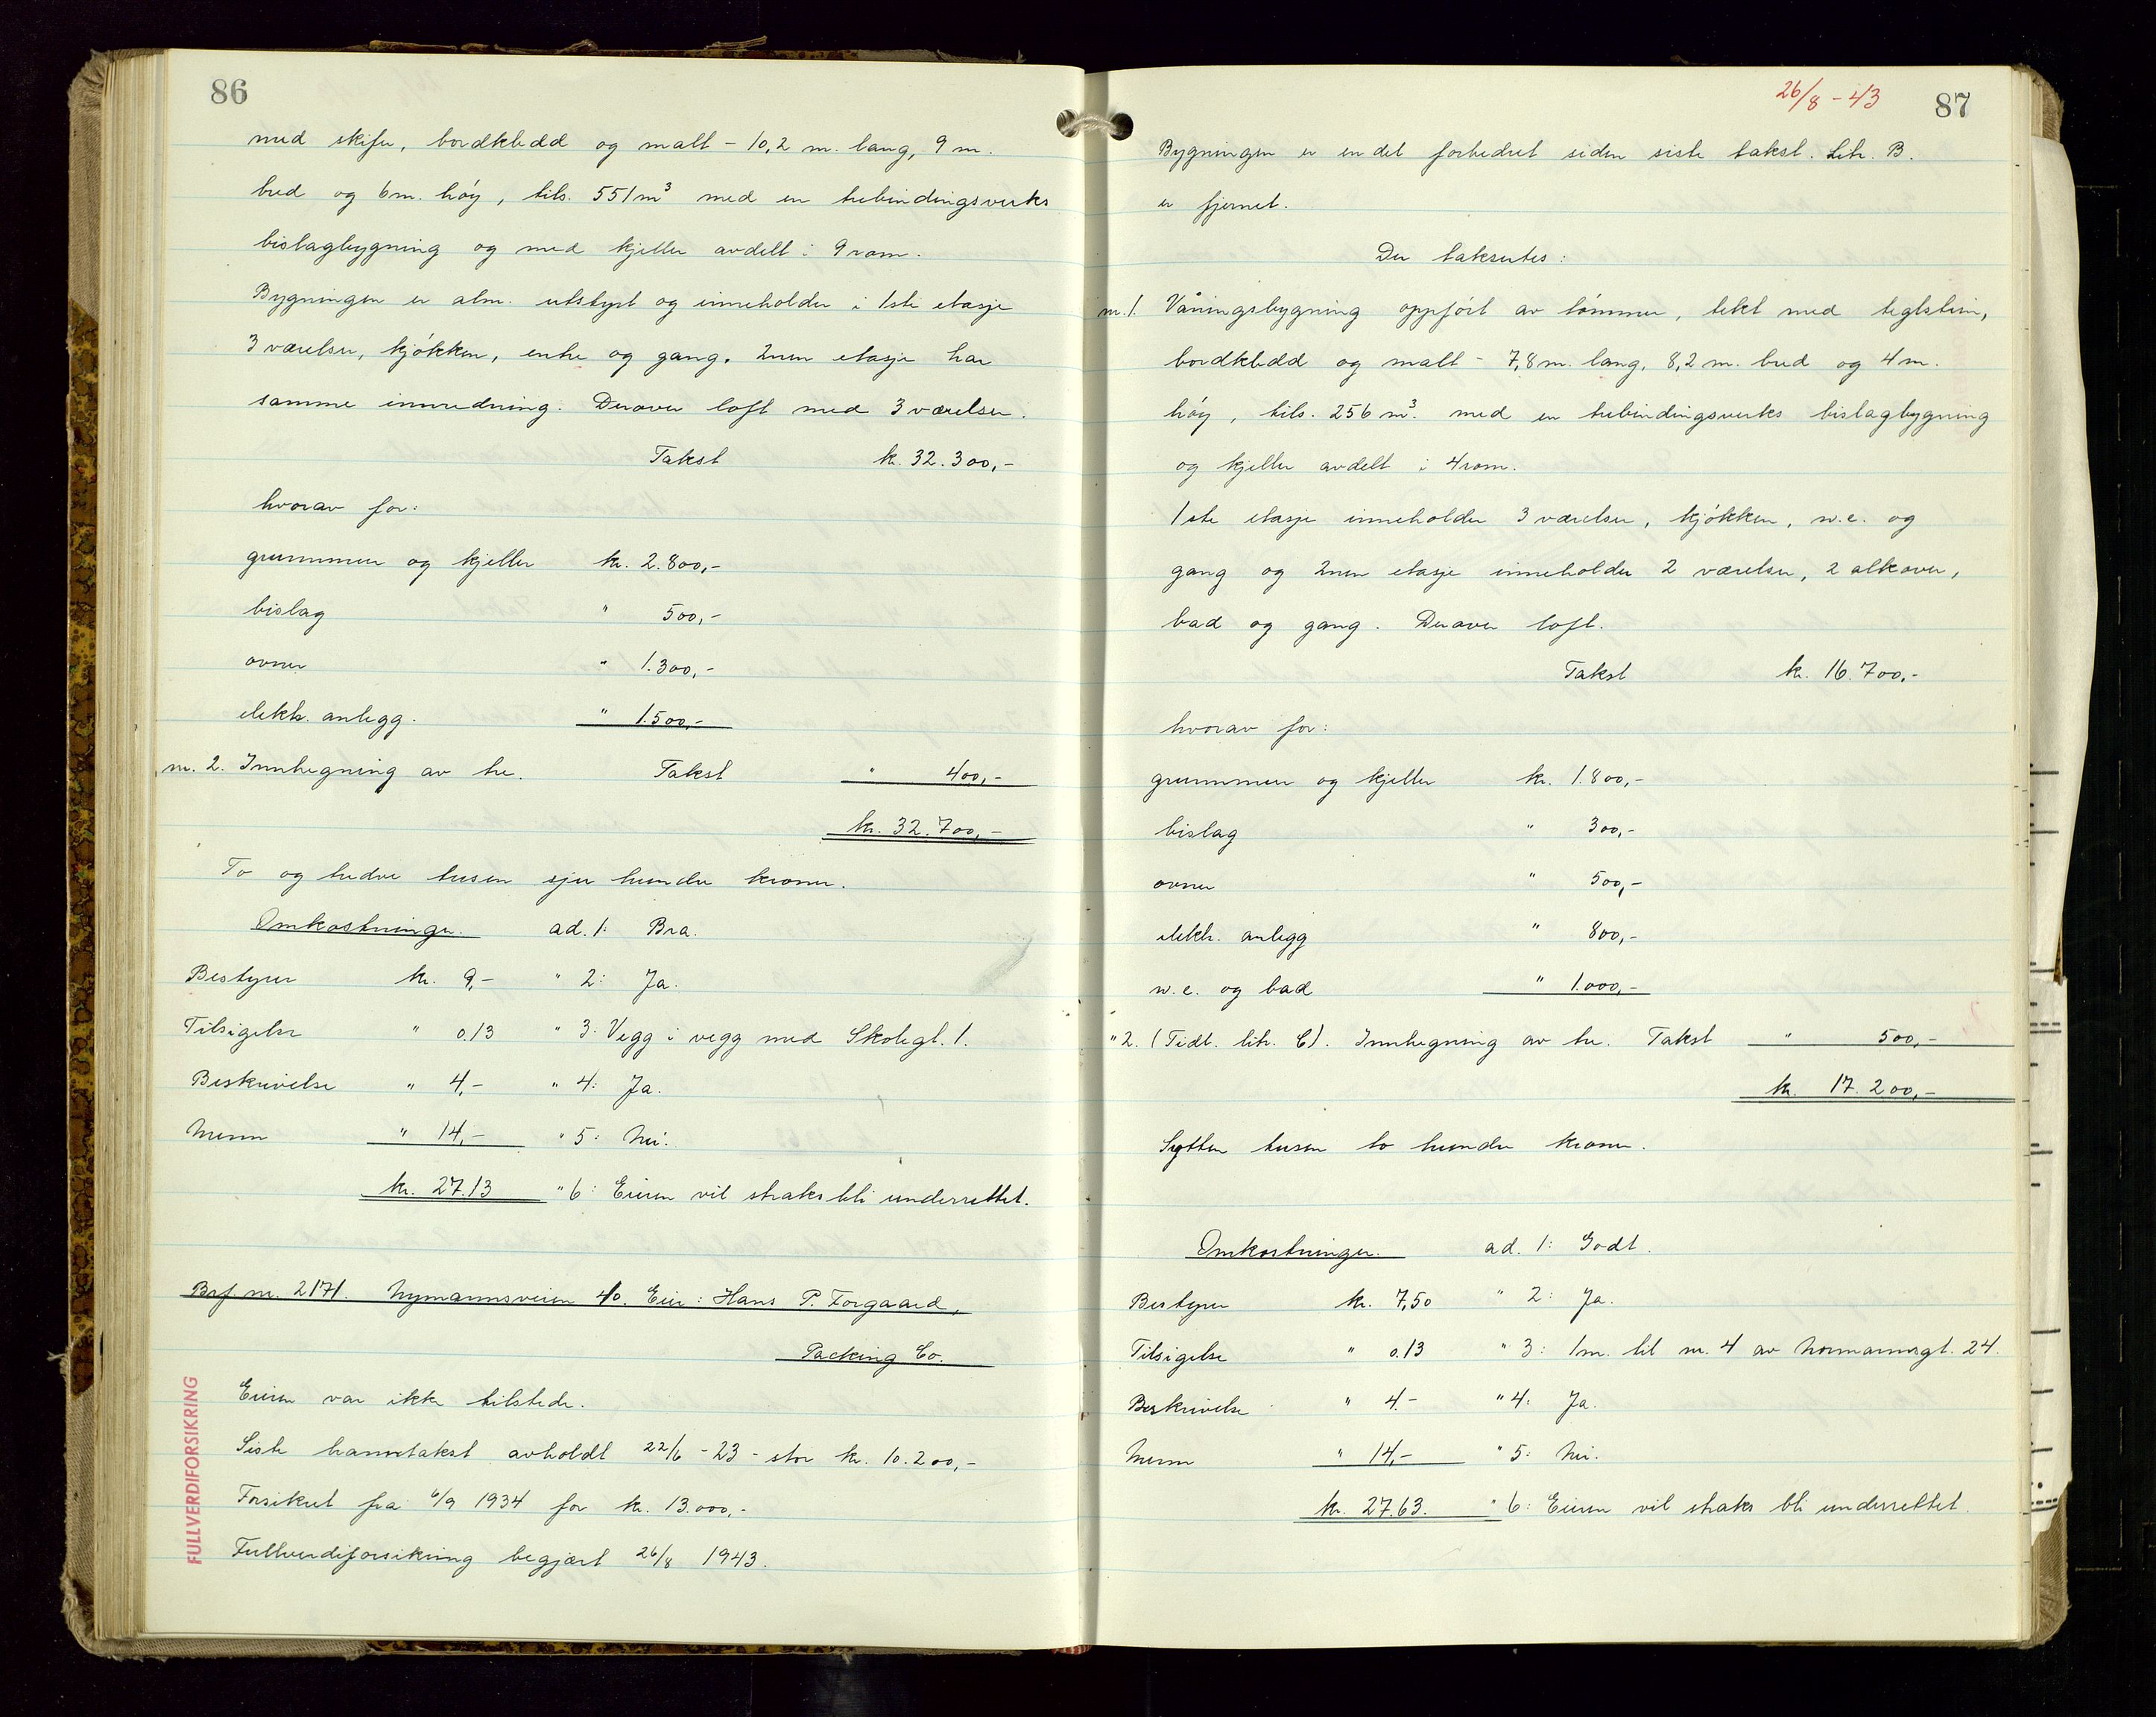 86
med skifer, bordkledd og malt - 10,2 m. lang, 9 m.
bred og 6 m. høy, tils. 551 m³ med en trebindingsverks
bislagbygning og med kjeller avdelt i 9 rom.
Bygningen er alm. utstyrt og inneholder i 1ste etasje
3 værelser, kjøkken, entre og gang. 2nen etasje har
samme innredning. Derover loft med 3 værelser.
Takst kr. 32.300,-
hvorav for:
grunnmur og kjeller kr. 2.800,-
bislag " 500,-
ovner " 1.300,-
elektr. anlegg. " 1.500,-
nr. 2. Innhegning av tre. Takst " 400,-
kr. 32.700,-
To og tredve tusen sju hundre kroner.
Omkostninger. ad. 1: Bra.
Bestyrer kr. 9,- " 2: Ja.
Tilsigelse " 0.13 " 3: Vegg i vegg med Skolegt. 1.
Beskrivelse " 4,- " 4: Ja.
Menn " 14,- " 5: Nei.
kr. 27.13 " 6: Eieren vil straks bli underrettet.
Brf. nr. 2171. Nymannsveien 40. Eier: Hans P. Forgaard,
Packing Co.
Eieren var ikke tilstede.
Siste branntakst avholdt 22/6 - 23 - stor kr. 10.200,-
Forsikret fra 6/9 1934 for kr. 13.000,-
Fullverdiforsikring begjært 26/8 1943.
FULLVERDIFORSIKRING
26/8 - 43
87
Bygningen er en del forbedret siden siste takst. Litr. B.
er fjernet.
Der takseres:
nr. 1. Våningsbygning oppført av tømmer, tekt med teglstein,
bordkledd og malt - 7,8 m. lang, 8,2 m. bred og 4 m.
høy, tils. 256 m³. med en trebindingsverks bislagbygning
og kjeller avdelt i 4 rom.
1ste etasje inneholder 3 værelser, kjøkken, w.c. og
gang og 2nen etasje inneholder 2 værelser, 2 alkover,
bad og gang. Derover loft.
Takst kr. 16.700,-
hvorav for:
grunnmur og kjeller kr. 1.800,-
bislag " 300,-
ovner " 500,-
elektr. anlegg " 800,-
w.c. og bad " 1.000,-
" 2. (Tidl. litr. C). Innhegning av tre. Takst " 500,-
kr. 17.200,-
Sytten tusen to hundre kroner.
Omkostninger. ad. 1: Godt.
Bestyrer kr. 7,50 " 2: Ja.
Tilsigelse " 0.13 " 3: 1 m. til nr. 4 av Normannsgt. 24.
Beskrivelse " 4.- " 4: Ja.
Menn " 14,- " 5: Nei.
kr. 27.63. " 6: Eieren vil straks bli underrettet.